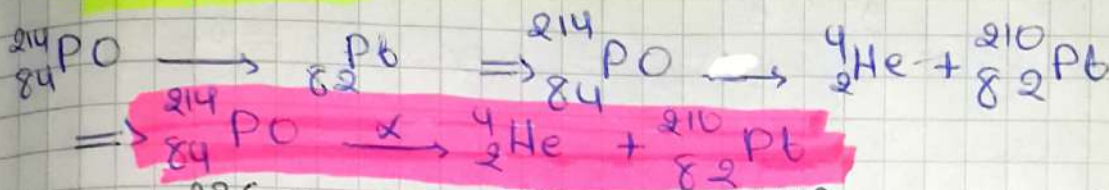 ²¹⁴₈₄PO ⟶ ₈₂Pb ⇒ ²¹⁴₈₄PO ⟶ ⁴₂He + ²¹⁰₈₂Pb
⇒ ²¹⁴₈₄PO —α→ ⁴₂He + ²¹⁰₈₂Pb